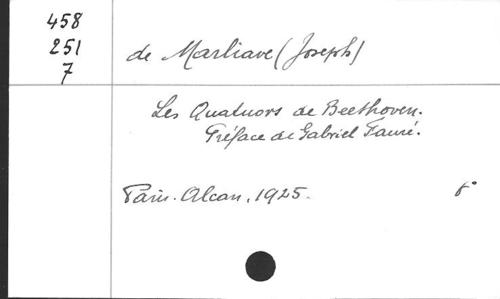 458
251
7
de Marliave (Joseph)
Les Quatuors de Beethoven.
Préface de Gabriel Fauré.
Paris. Alcan, 1925.